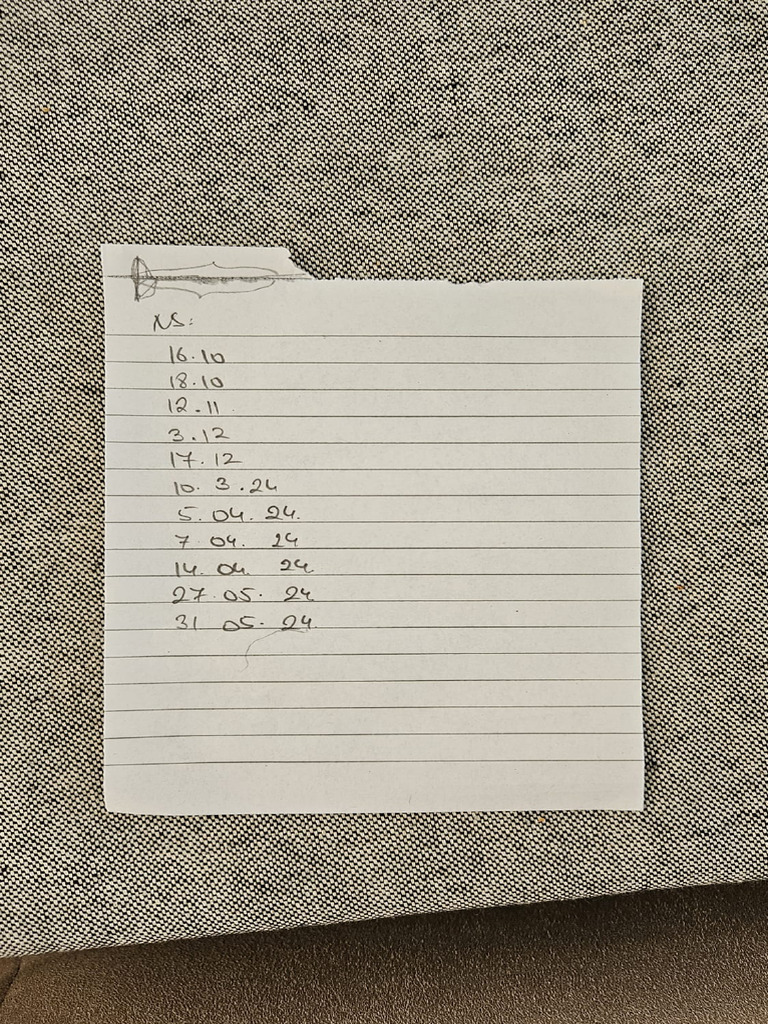 NS:
16.10
18.10
12.11
3.12
17.12
10.3.24
5.04.24.
7 04. 24
14.04 24
27.05.24
31 05.24.